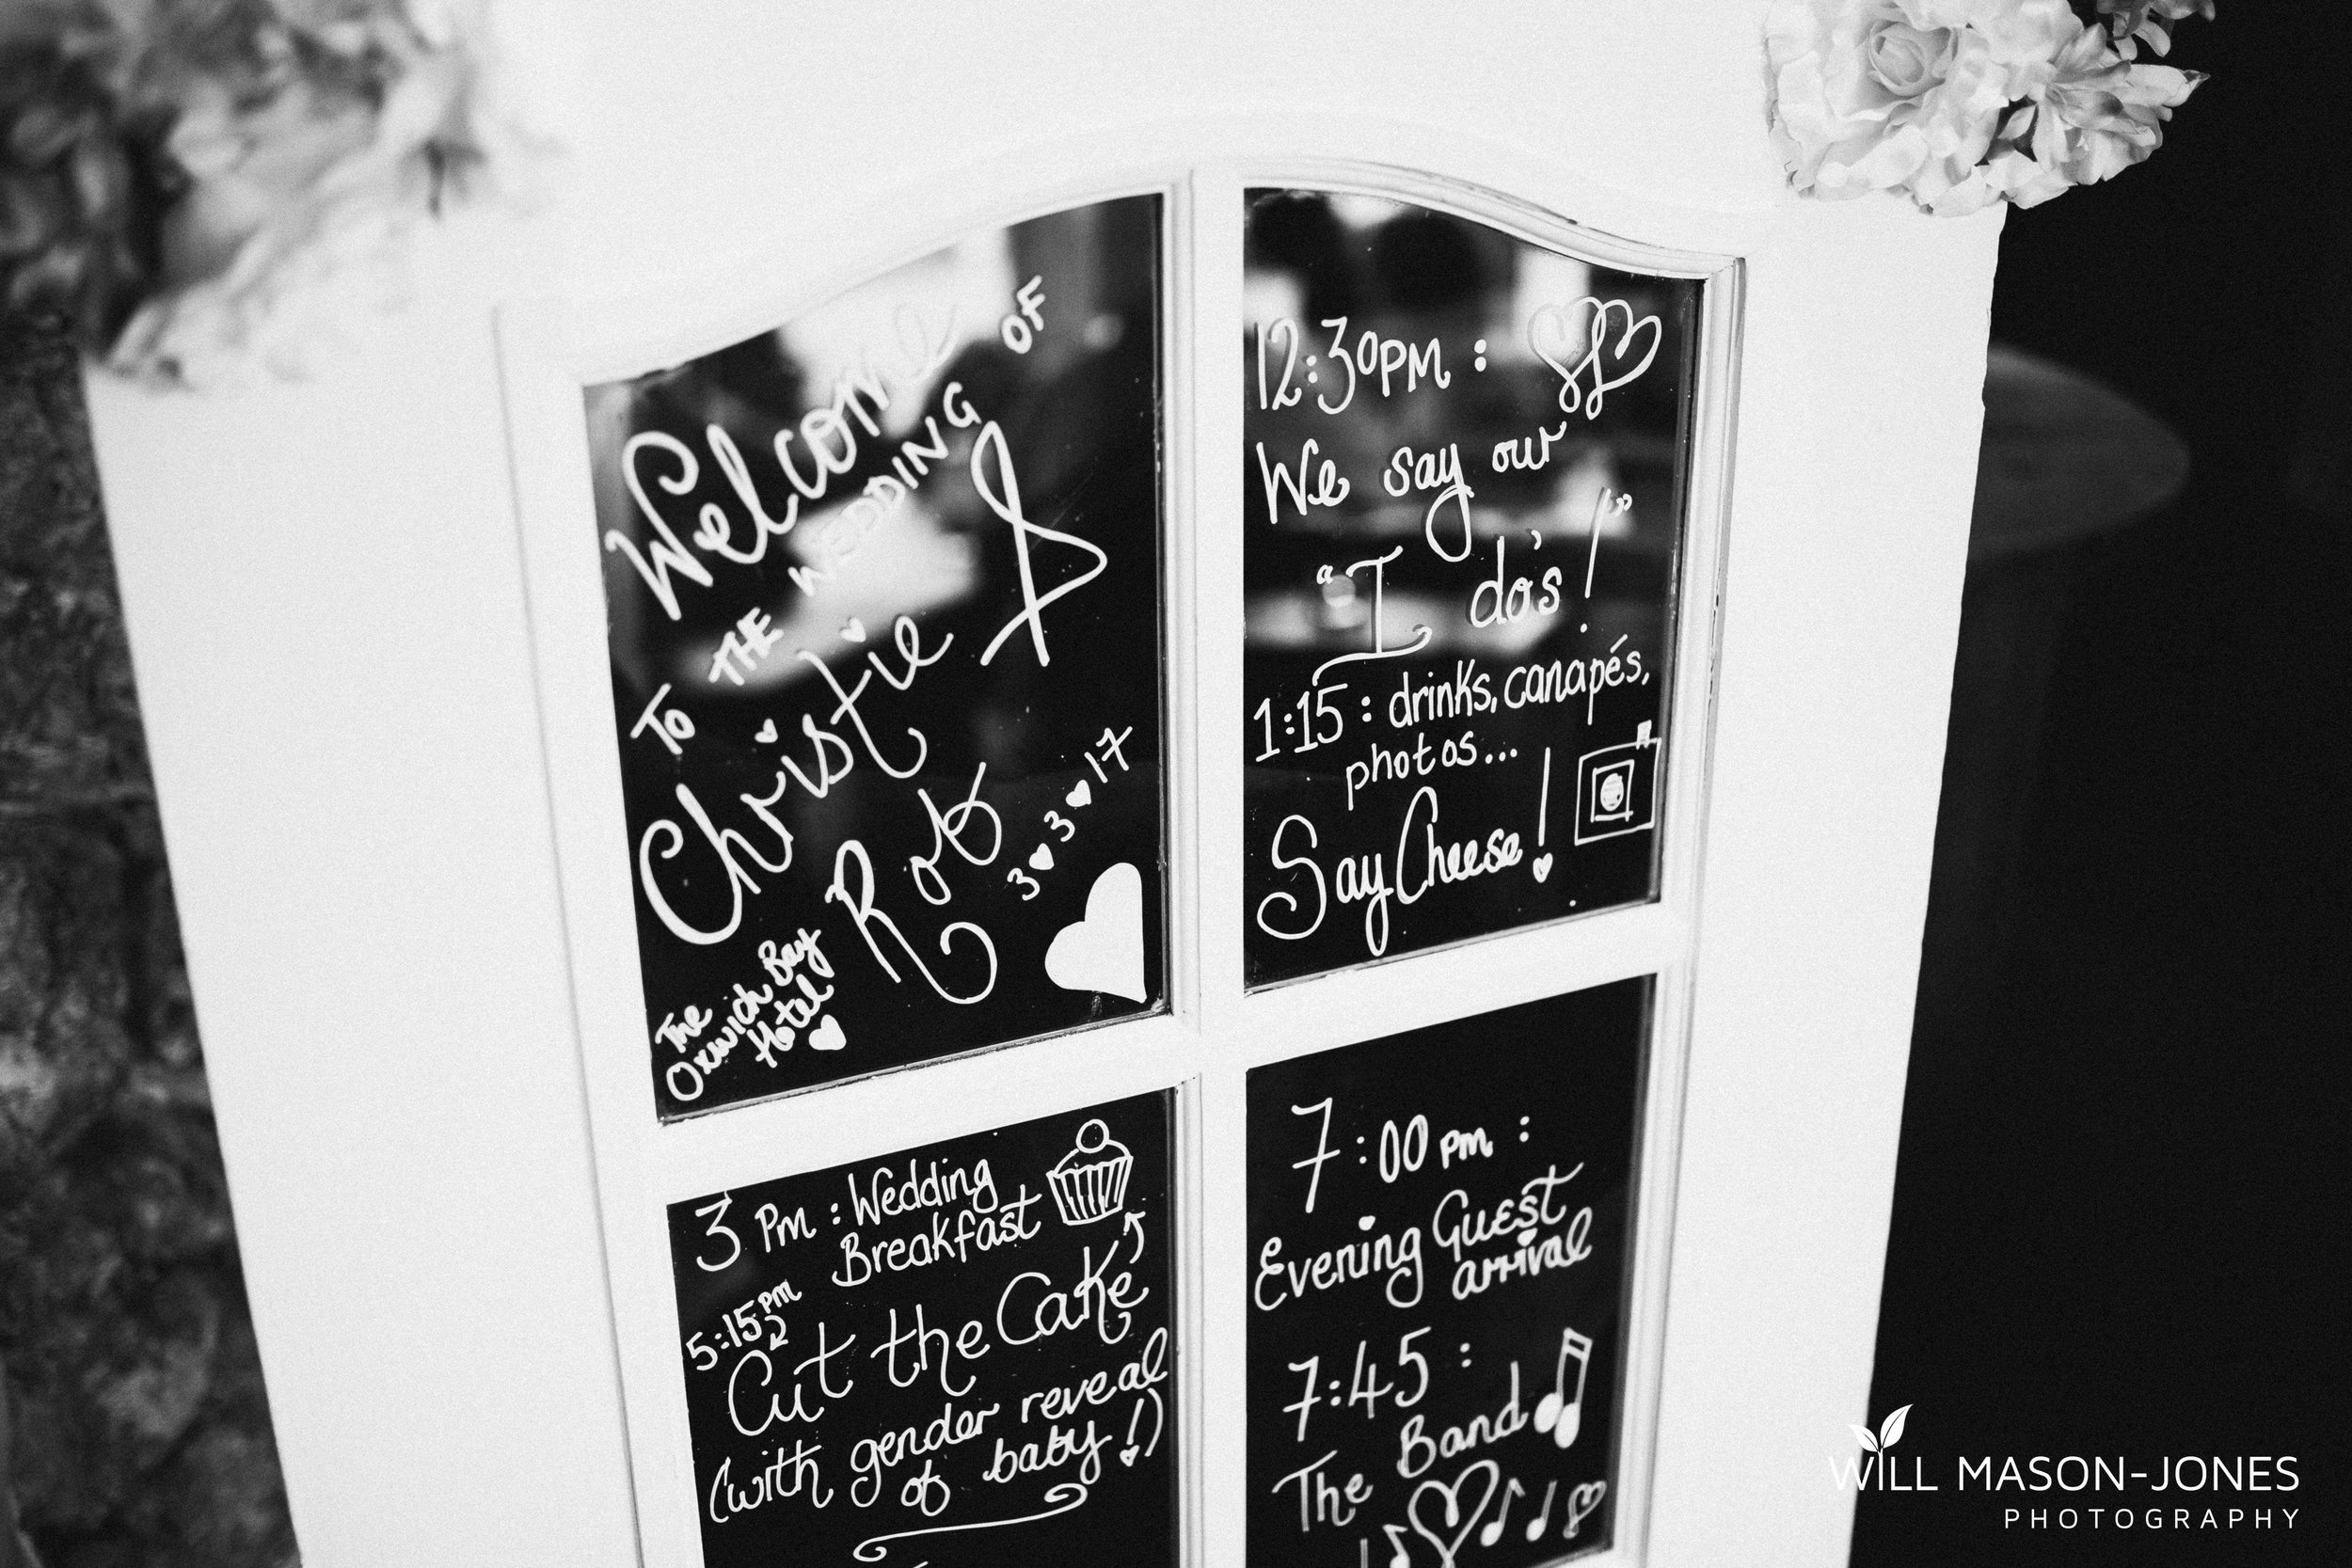 Welcome OF
TO THE WEDDING
Christie &
Rob
3 3 17
The
Oxwich Bay
Hotel
12:30PM :
We say our
"I do's!"
1:15 : drinks, canapés,
photos...
Say Cheese!
3 Pm : Wedding
Breakfast
5:15pm
Cut the Cake
(with gender reveal
of baby!)
7:00 pm :
Evening Guest
arrival
7:45 :
The Band
WILL MASON-JONES
PHOTOGRAPHY